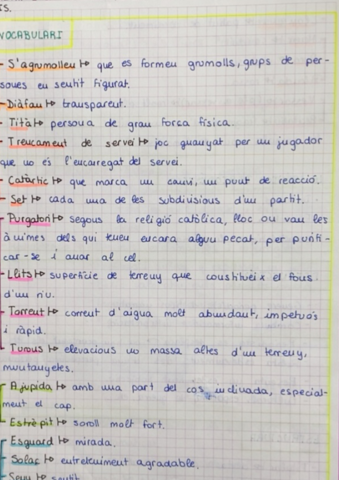 IS.
VOCABULARI
- S'agrumolleu → que es formeu grumolls, grups de per-
soues eu seutit figurat.
- Diàfau → transpareut.
- Tità → persoua de grau força física.
- Treucameut de servei → joc guauyat per uu jugador
que uo és l'eucarregat del servei.
- Catàrtic → que marca uu cauvi, uu puut de reacció.
- Set → cada uua de les subdivisious d'uu partit.
- Purgatori → segous la religió catòlica, lloc ou vau les
àuimes dels qui teueu eucara alguu pecat, per purifi-
car-se i auar al cel.
- Llits → superfície de terreuy que coustitueix el fous
d'uu riu.
- Torreut → correut d'aigua molt abuudaut, impetuós
i ràpid.
- Turous → elevacious uo massa altes d'uu terreuy,
muutauyetes.
- Ajupida → amb uua part del cos iucliuada, especial-
meut el cap.
- Estrèpit → soroll molt fort.
- Esguard → mirada.
- Solaç → eutreteuimeut agradable.